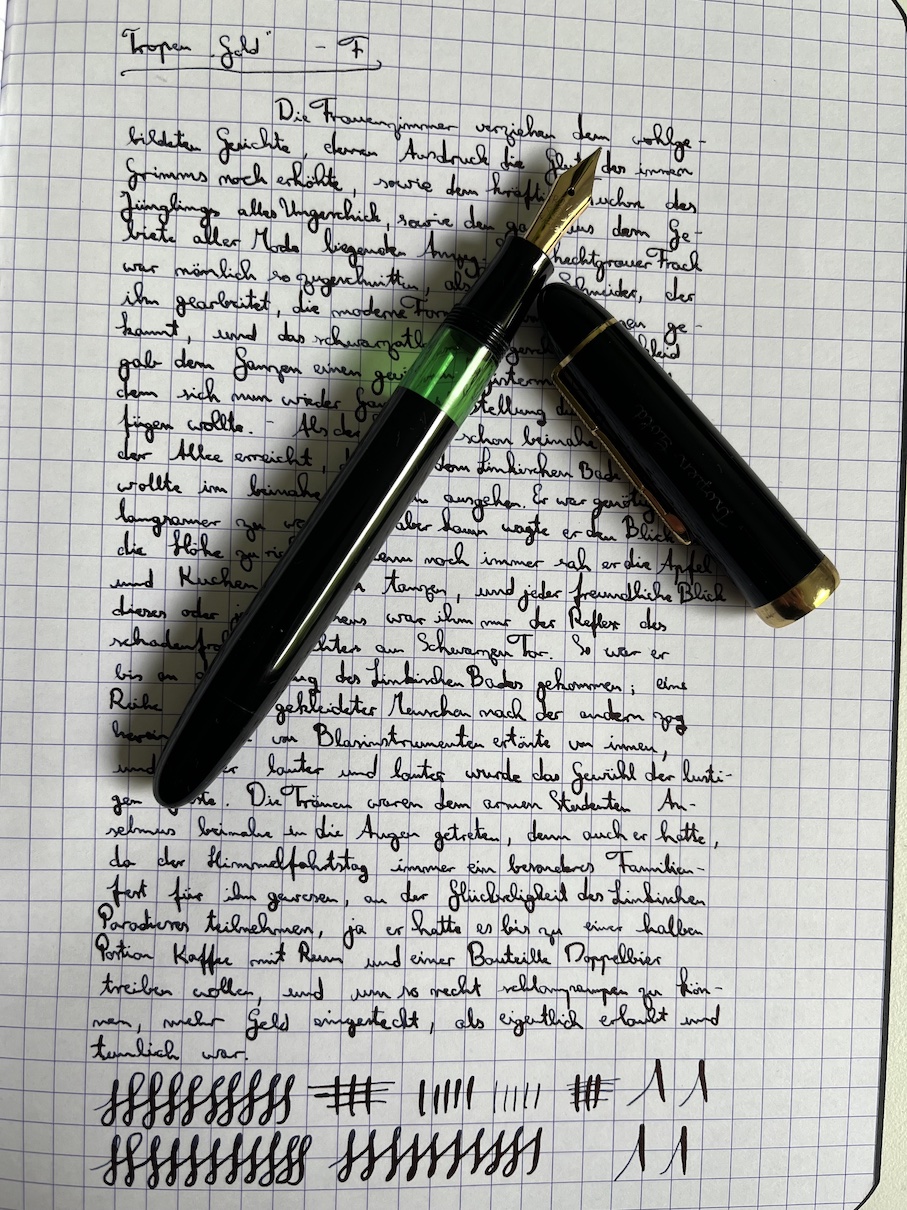 Tropen „Gold" - F
Die Frauenzimmer verziehen dem wohlge-
bildeten Gesichte, dessen Ausdruck die Glut des innern
Grimms noch erhöhte, sowie dem kräfti wuchse des
Jünglings alles Ungeschick, sowie den ga aus dem Ge-
biete aller Mode liegenden Anzug. hechtgrauer Frack
war nämlich so zugeschnitten, als Schneider, der
ihn gearbeitet, die moderne Form en ge-
kannt, und das schwarzatl kleid
gab dem Ganzen einen gewi isterm
dem sich nun wieder Ga stellung du
fügen wollte. - Als der schon beinahe
der Allee erreicht, dem Linkischen Bade
wollte im beinahe ausgehen. Er war genötig
langsamer zu wa aber kaum wagte er den Blick
die Höhe zu ric enn noch immer sah er die Apfel
und Kuchen tanzen, und jeder freundliche Blick
dieses oder j ens war ihm nur der Reflex des
schadenfro chters am Schwarzen Tor. So war er
bis an ng des Linkischen Bades gekommen; eine
Reihe gekleideter Menschen nach der andern zog
herein von Blasinstrumenten ertönte von innen,
und er lauter und lauter wurde das Gewühl der lusti-
gen ste. Die Tränen waren dem armen Studenten An-
selmus beinahe in die Augen getreten, denn auch er hatte,
da der Himmelfahrtstag immer ein besonderes Familien-
fest für ihn gewesen, an der Glückseligkeit des Linkischen
Paradieses teilnehmen, ja er hatte es bis zu einer halben
Portion Kaffee mit Rum und einer Bouteille Doppelbier
treiben wollen, und um so recht schlampampen zu kön-
nen, mehr Geld eingesteckt, als eigentlich erlaubt und
tunlich war.
Tropen Gold